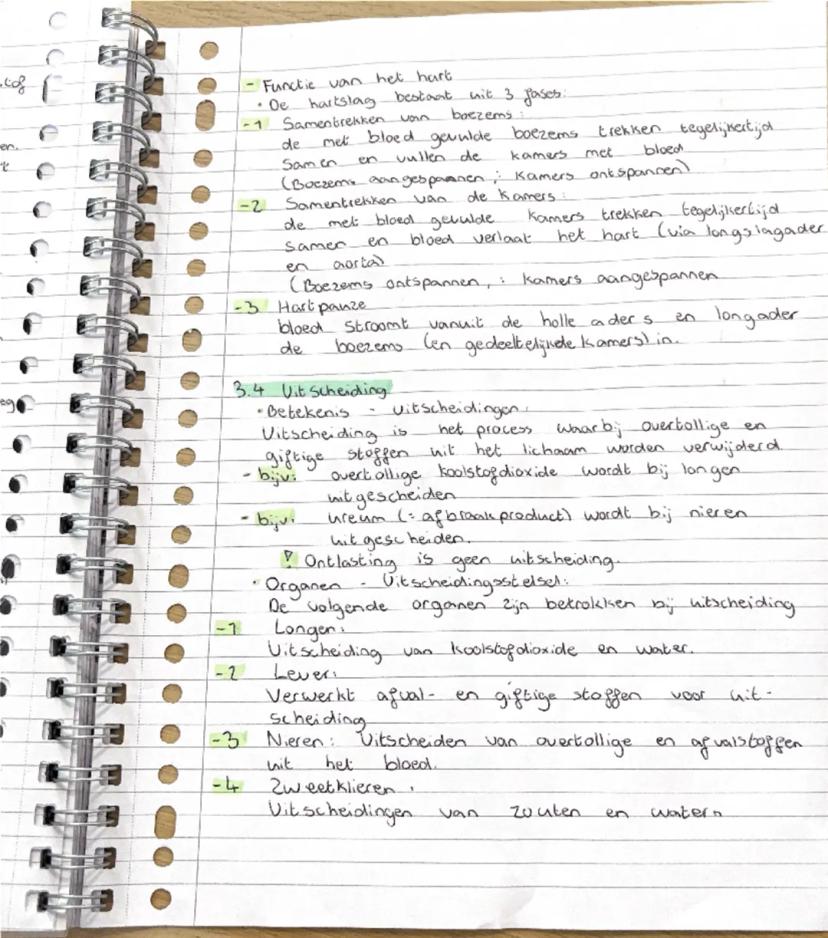 - Functie van het hart
• De hartslag bestaat uit 3 fases:
-1 Samentrekken van boezems:
de met bloed gevulde boezems trekken tegelijkertijd
samen en vullen de kamers met bloed
(Boezems aangespannen ; kamers ontspannen)
-2 Samentrekken van de kamers:
de met bloed gevulde kamers trekken tegelijkertijd
samen en bloed verlaat het hart (via longslagader
en aorta)
(Boezems ontspannen, : kamers aangespannen
-3 Hartpauze
bloed stroomt vanuit de holle aders en longader
de boezems (en gedeeltelijke kamers) in.
3.4 Uitscheiding
• Betekenis - uitscheidingen:
Uitscheiding is het process waarbij overtollige en
giftige stoffen uit het lichaam worden verwijderd
- bijv: overtollige koolstofdioxide wordt bij longen
uitgescheiden
- bijv: ureum (= afbraakproduct) wordt bij nieren
uitgescheiden.
! Ontlasting is geen uitscheiding.
• Organen - Uitscheidingsstelsel:
De volgende organen zijn betrokken bij uitscheiding
-1 Longen:
Uitscheiding van koolstofdioxide en water.
-2 Lever:
Verwerkt afval- en giftige stoffen voor uit-
scheiding
-3 Nieren: Uitscheiden van overtollige en afvalstoffen
uit het bloed.
-4 Zweetklieren:
Uitscheidingen van zouten en watern